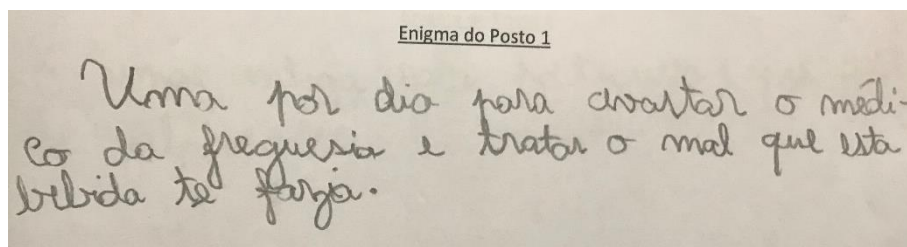 Enigma do Posto 1
Uma por dia para avastar o médi-
co da freguesia e tratar o mal que esta
bebida te fazia.